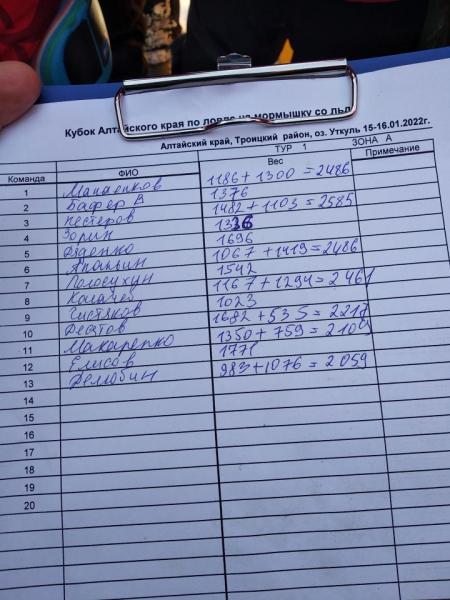 Кубок Алтайского края по ловле на мормышку со льд
Алтайский край, Троицкий район, оз. Уткуль 15-16.01.2022г.
ТУР 1 ЗОНА А
Команда ФИО Вес Примечание
1 Мананников 1186 + 1300 = 2486
2 Бафер В 1376
3 Нестеров 1482 + 1103 = 2585
4 Зорин 1336
5 Дяденко 1696
6 Апаньин 1067 + 1419 = 2486
7 Полосухин 1542
8 Качаев 1167 + 1294 = 2461
9 Чистяков 1023
10 1682 + 535 = 2217
11 Макаренко 1350 + 759 = 2109
12 Елисов 1771
13 983 + 1076 = 2059
14
15
16
17
18
19
20